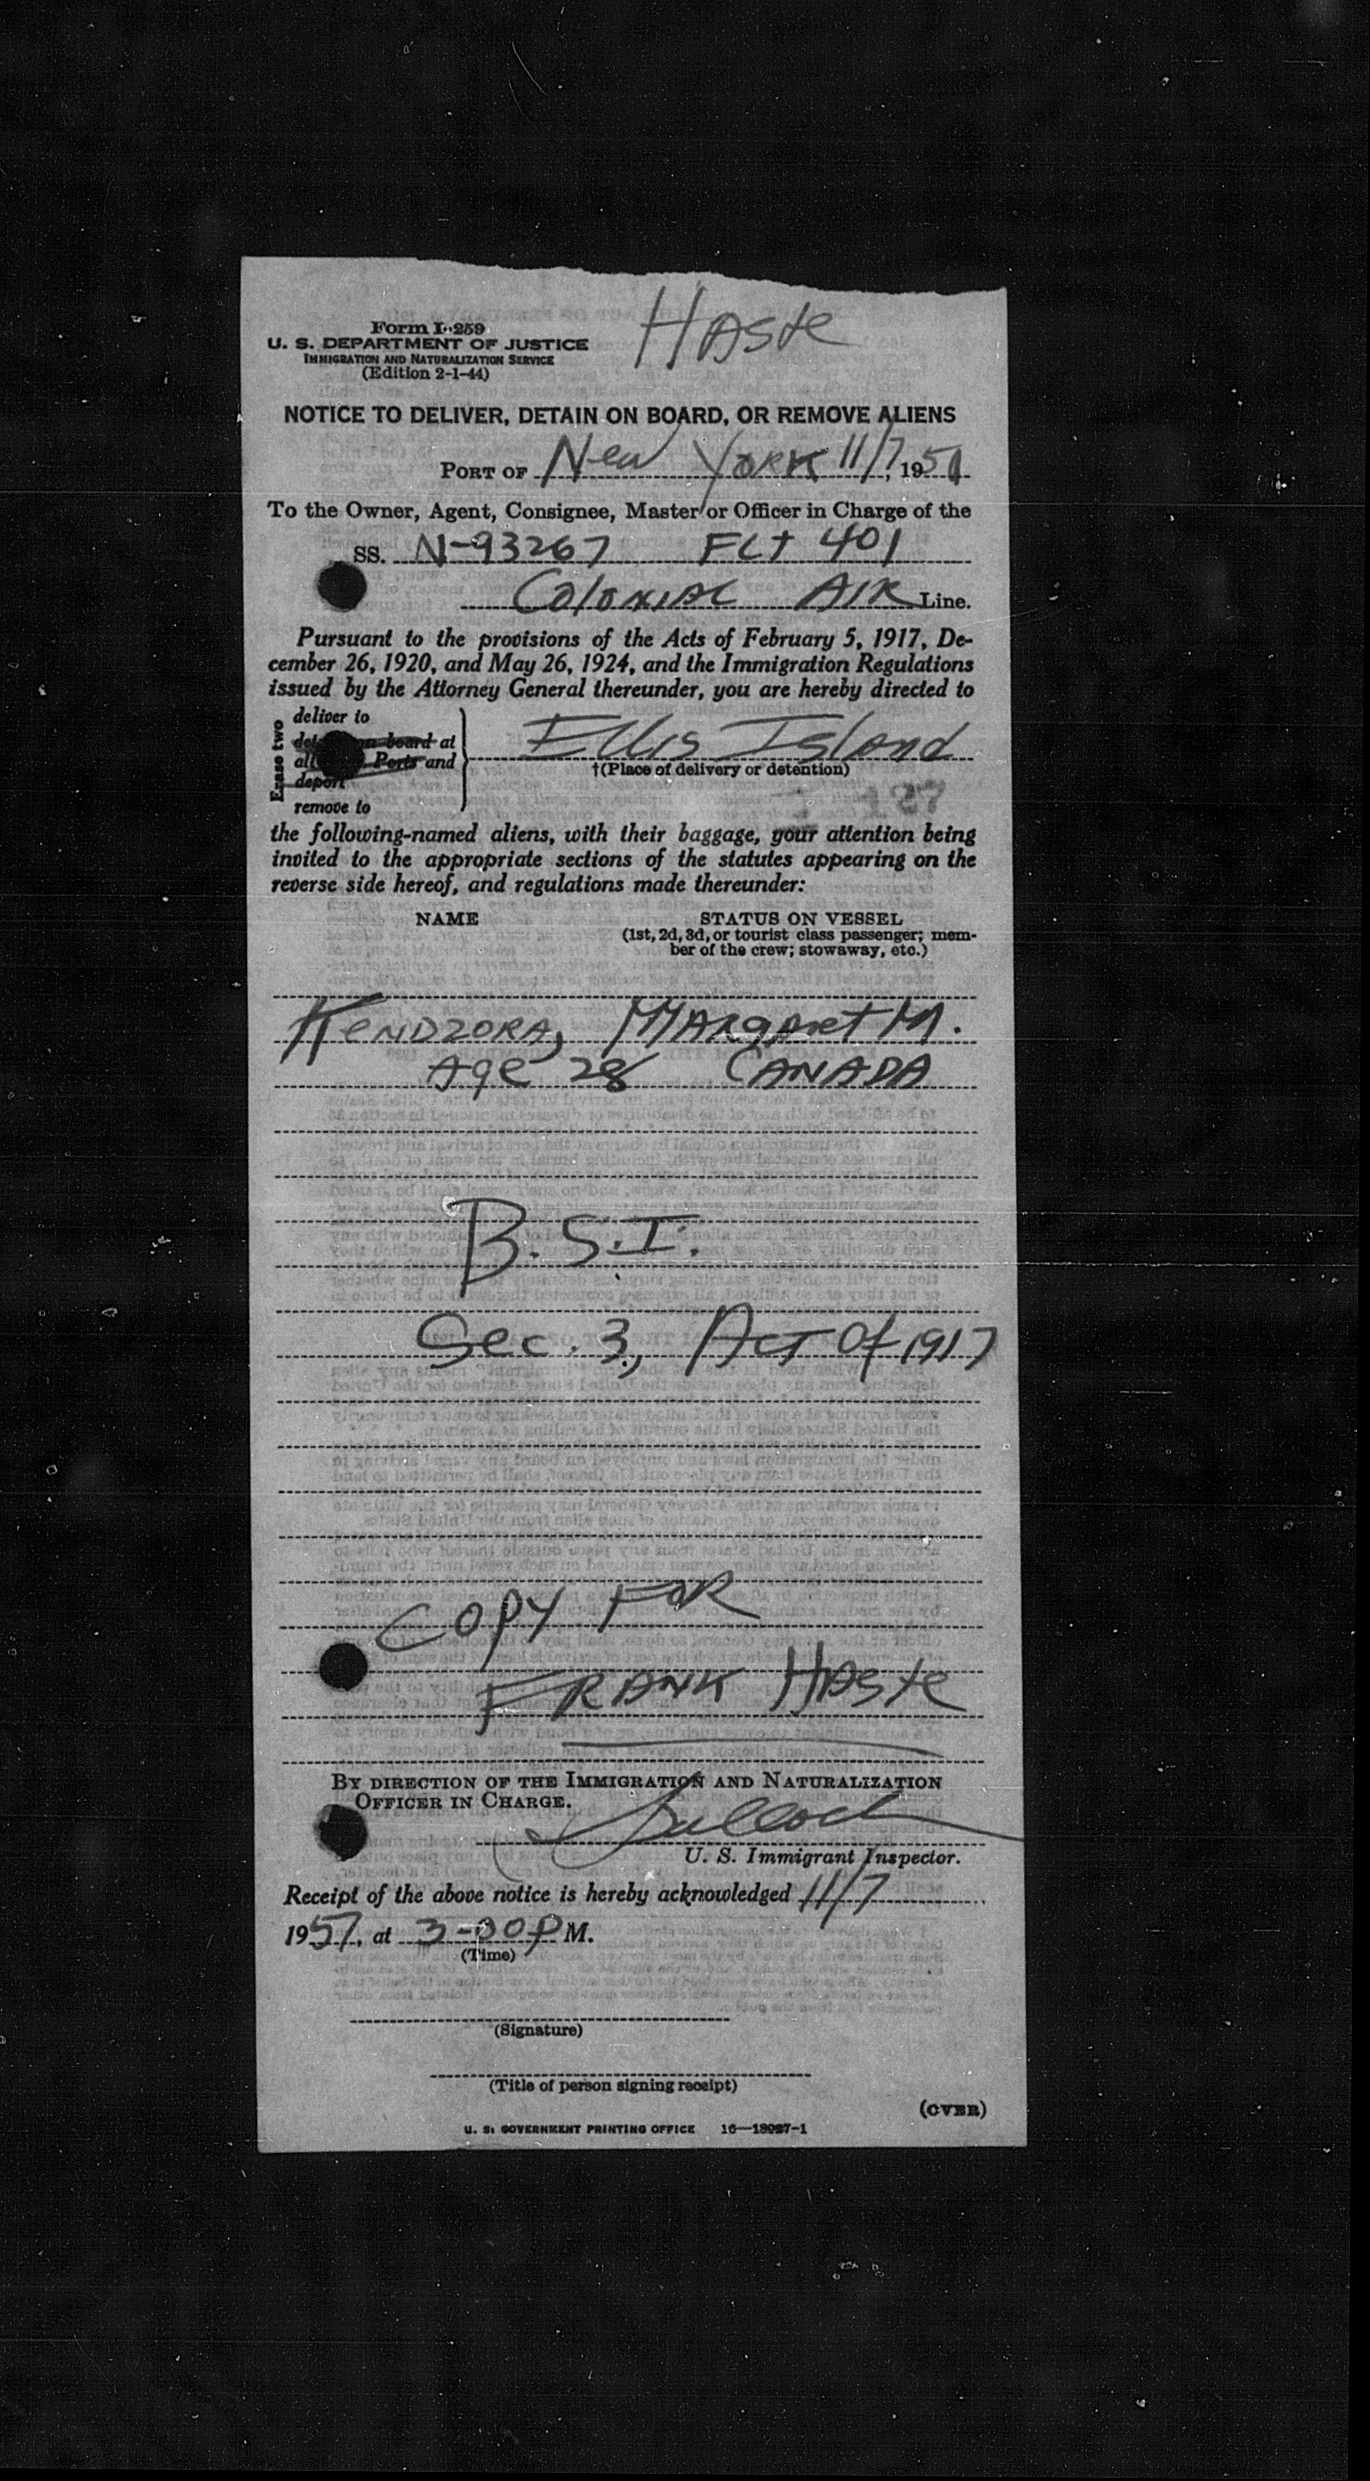 Form I-259
U. S. DEPARTMENT OF JUSTICE
IMMIGRATION AND NATURALIZATION SERVICE
(Edition 2-1-44)
HASte
NOTICE TO DELIVER, DETAIN ON BOARD, OR REMOVE ALIENS
PORT OF New York 11/7, 1951
To the Owner, Agent, Consignee, Master or Officer in Charge of the
SS. N-93267 FLt 401
COloNIAL AIR Line.
Pursuant to the provisions of the Acts of February 5, 1917, De-
cember 26, 1920, and May 26, 1924, and the Immigration Regulations
issued by the Attorney General thereunder, you are hereby directed to
Erase two
deliver to
on board at
Ports and
deport
remove to
Ellis Island
†(Place of delivery or detention)
the following-named aliens, with their baggage, your attention being
invited to the appropriate sections of the statutes appearing on the
reverse side hereof, and regulations made thereunder:
NAME
STATUS ON VESSEL
(1st, 2d, 3d, or tourist class passenger; mem-
ber of the crew; stowaway, etc.)
KeNDZORA, MARgAret M.
Age 28 CANADA
B.S.I.
Sec. 3, Act Of 1917
COPY FOR
FRANK HASte
BY DIRECTION OF THE IMMIGRATION AND NATURALIZATION
OFFICER IN CHARGE.
U. S. Immigrant Inspector.
Receipt of the above notice is hereby acknowledged 11/7
1951, at 3-00 P M.
(Time)
(Signature)
(Title of person signing receipt)
(OVER)
U. S. GOVERNMENT PRINTING OFFICE 16—13027-1